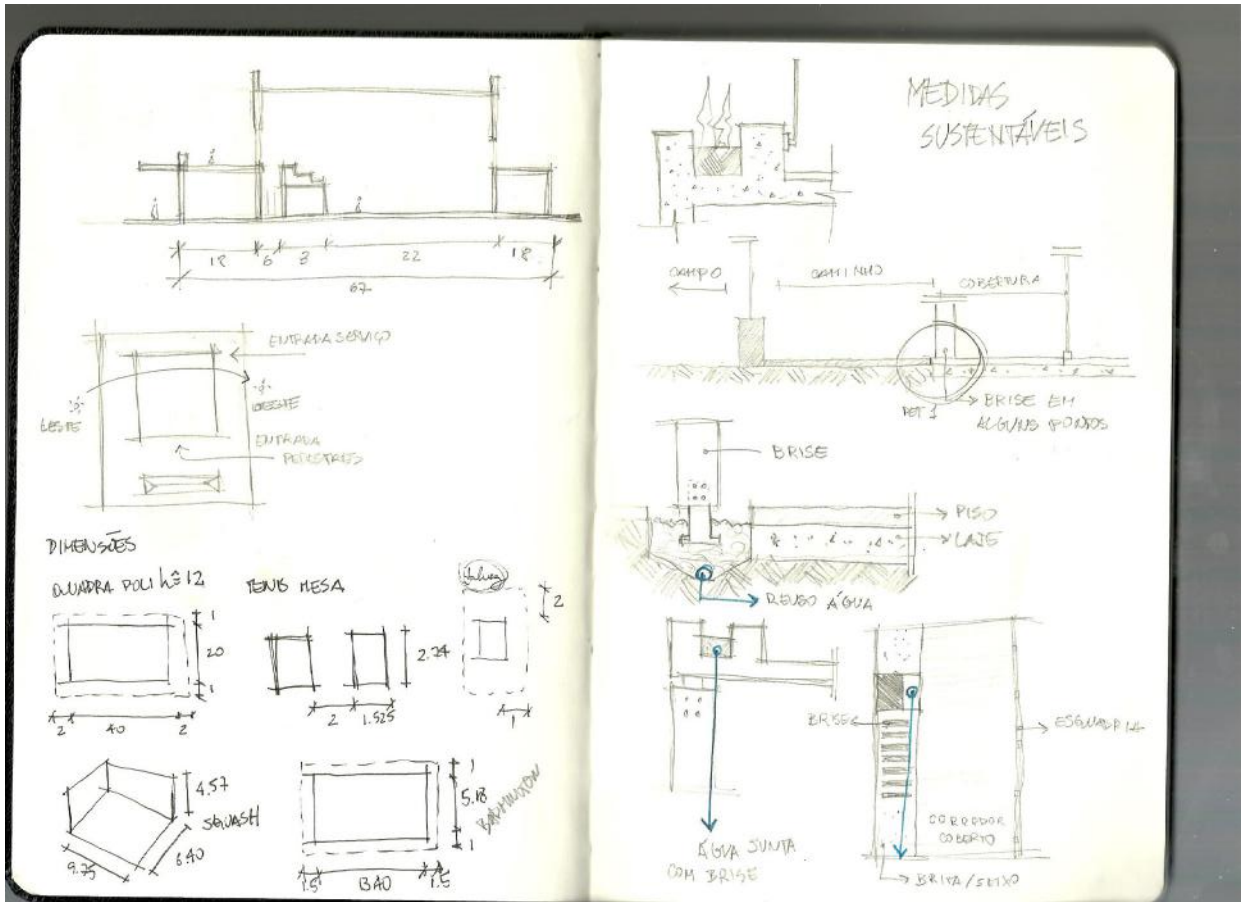 12 6 3 22 18
67
ENTRADA SERVIÇO
LESTE
OESTE
ENTRADA
PEDESTRES
DIMENSÕES
QUADRA POLI
12
TENIS MESA
1
20
1
2 40 2
2.74
2 1.525
2
1
4.57
SQUASH
9.75
6.40
1
5.18
1
BADMINTON
1.5
1.5
MEDIDAS
SUSTENTÁVEIS
CAMPO
CAMINHO
COBERTURA
DET 1
BRISE EM
ALGUNS PONTOS
BRISE
PISO
LAJE
REUSO ÁGUA
BRISE
ESQUADRIA
ÁGUA JUNTA
COM BRISE
CORREDOR
COBERTO
BRITA/SEIXO